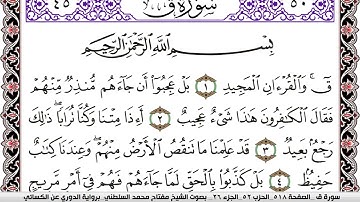 ٤٥ سُورَةُ ق ٥٠
بِسْمِ اللَّهِ الرَّحْمَٰنِ الرَّحِيمِ
قٓ ۚ وَالْقُرْءَانِ الْمَجِيدِ ١ بَلْ عَجِبُوٓا۟ أَن جَآءَهُم مُّنذِرٌ مِّنْهُمْ
فَقَالَ الْكَٰفِرُونَ هَٰذَا شَىْءٌ عَجِيبٌ ٢ أَءِذَا مِتْنَا وَكُنَّا تُرَابًا ۖ ذَٰلِكَ
رَجْعٌۢ بَعِيدٌ ٣ قَدْ عَلِمْنَا مَا تَنقُصُ الْأَرْضُ مِنْهُمْ ۖ وَعِندَنَا كِتَٰبٌ
حَفِيظٌۢ ٤ بَلْ كَذَّبُوا۟ بِالْحَقِّ لَمَّا جَآءَهُمْ فَهُمْ فِىٓ أَمْرٍ مَّرِيجٍ
سورة ق الصفحة ٥١٨ الحزب ٥٢ الجزء ٢٦ بصوت الشيخ مفتاح محمد السلطني برواية الدوري عن الكسائي